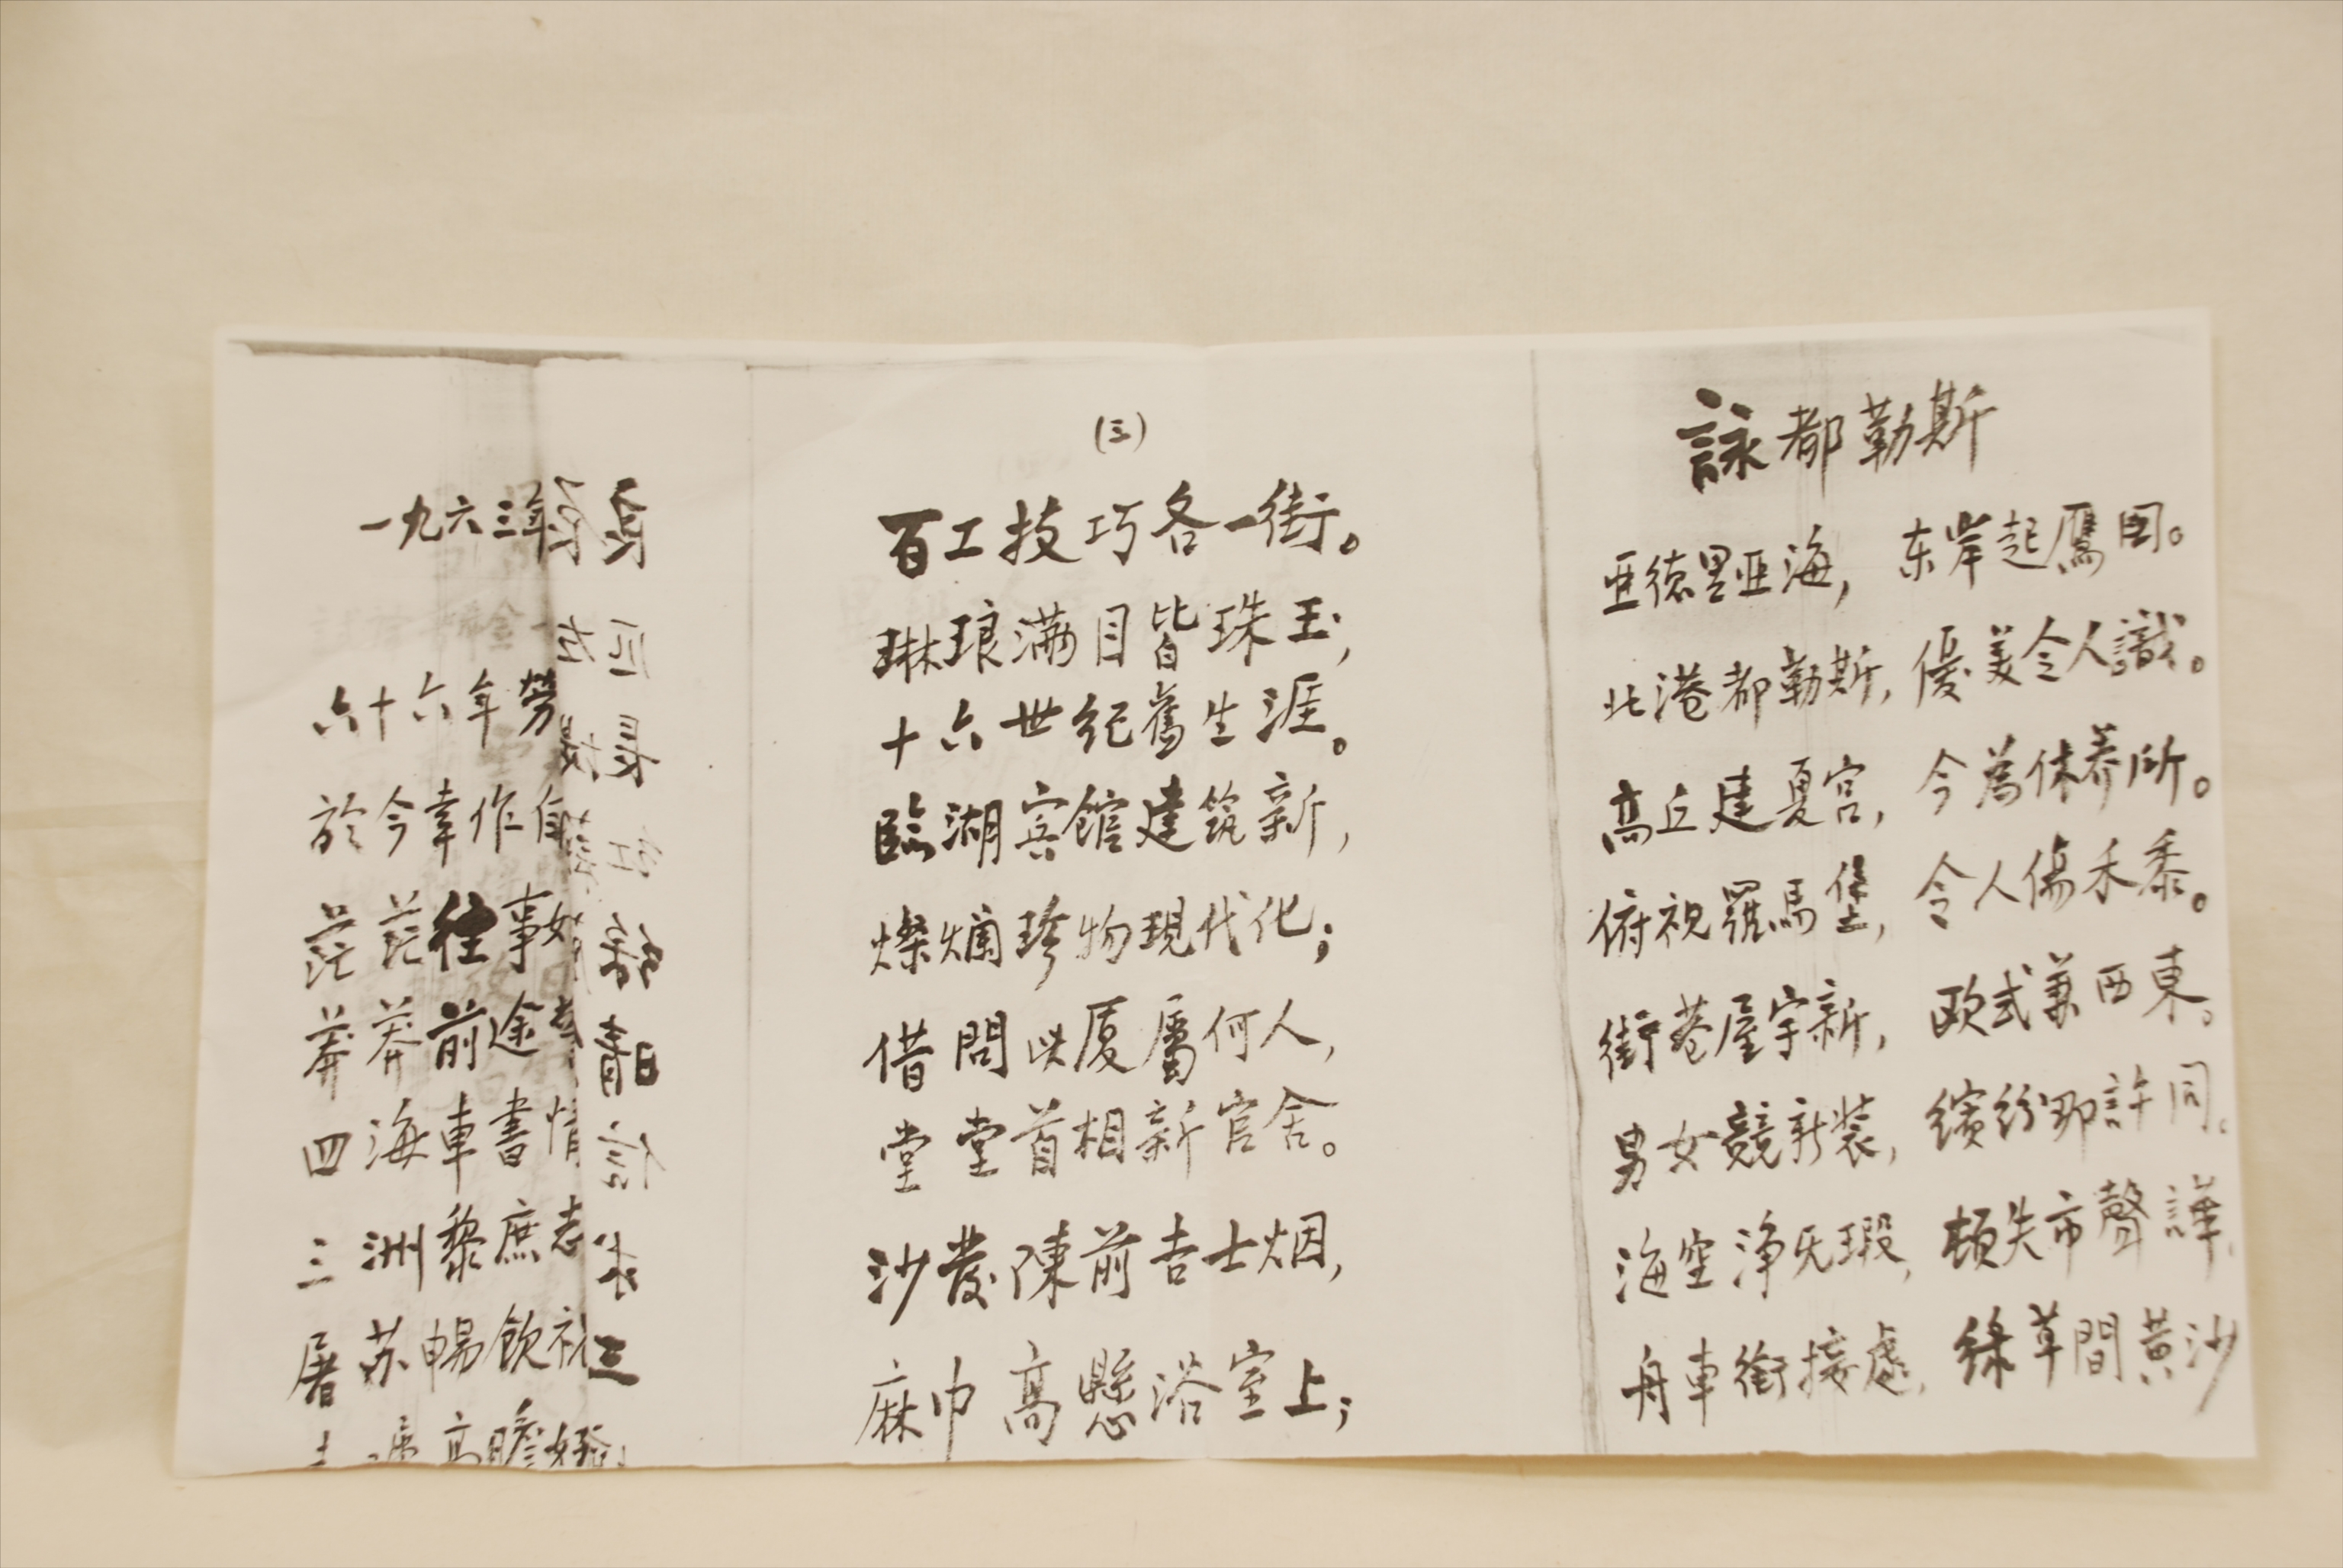 一九六三年
六十六年勞
於今幸作自
茫茫往事如
莽莽前途
四海車書情
三洲黎庶志
屠苏暢飲祝
高瞻
(三)
百工技巧各一街。
琳琅满目皆珠玉,
十六世纪舊生涯。
臨湖宾館建筑新,
燦爛珍物現代化;
借問此厦屬何人,
堂堂首相新官舍。
沙發陳前吉士烟,
麻巾高懸浴室上;
詠都勒斯
亚德里亚海,东岸起鷹国。
北港都勒斯,優美令人識。
高丘建夏宫,今為休养所。
俯視羅馬堡,令人傷禾黍。
街巷屋宇新,欧式兼西東。
男女競新装,缤纷那許同。
海空净无瑕,頓失市聲譁
舟車銜接處,綠草間黄沙